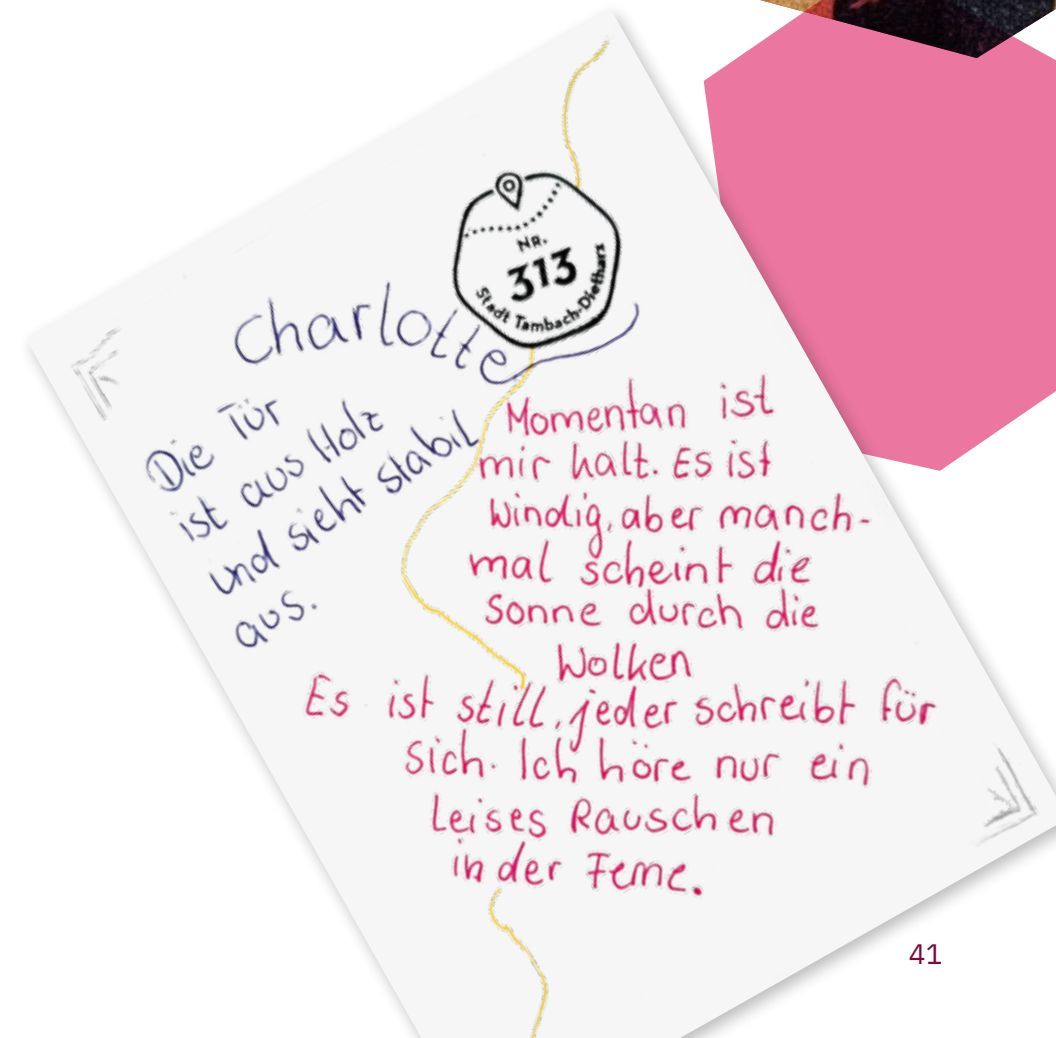 NR.
313
Stadt Tambach-Dietharz
Charlotte
Die Tür
ist aus Holz
und sieht stabil
aus.
Momentan ist
mir kalt. Es ist
windig, aber manch-
mal scheint die
Sonne durch die
Wolken
Es ist still, jeder schreibt für
sich. Ich höre nur ein
leises Rauschen
in der Ferne.
41